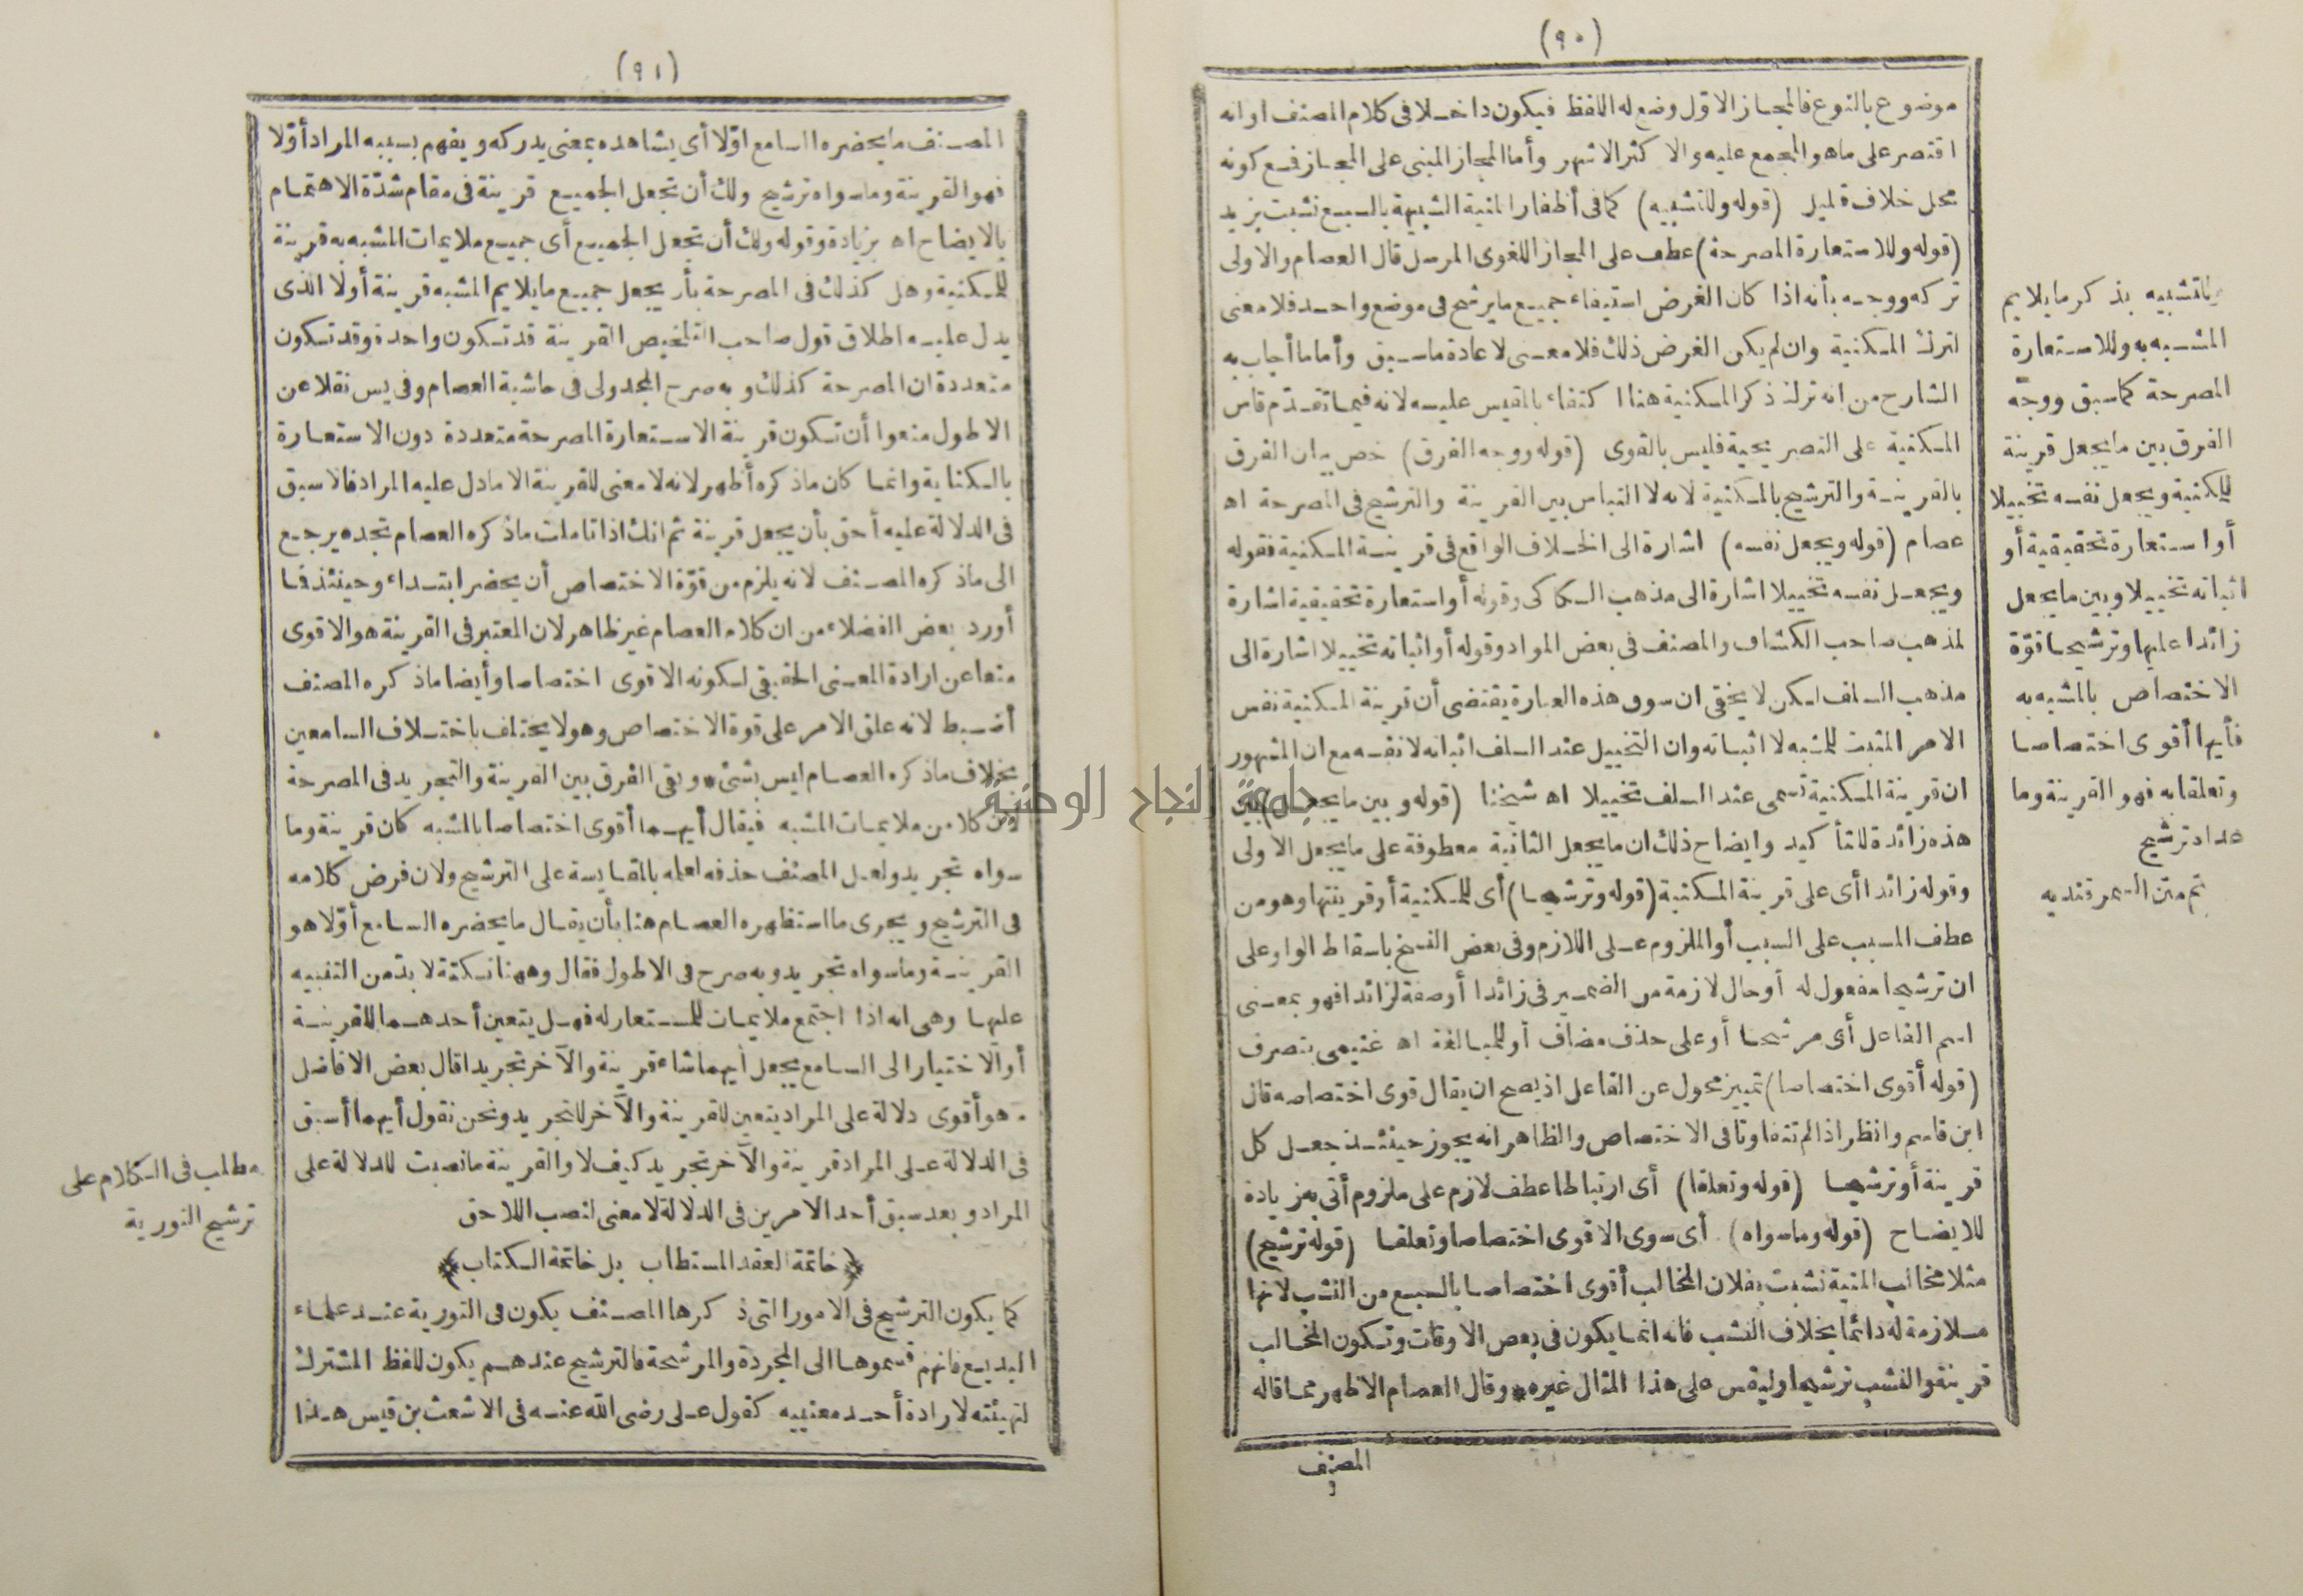 (٩٠)
موضوع بالنوع فالمجاز الاول وضع له اللفظ فيكون داخلا فى كلام المصنف اوانه
اقتصر على ما هو المجمع عليه والاكثر الاشهر وأما المجاز المبنى على المجاز فمع كونه
محل خلاف قليل (قوله وللتشبيه) كما فى أظفار المنية الشبيهة بالسبع نشبت بزيد
(قوله وللاستعارة المصرحة) عطف على المجاز اللغوى المرسل قال العصام والاولى
تركه ووجه بأنه اذا كان الغرض استيفاء جميع ما يرشح فى موضع واحد فلا معنى
لترك المكنية وان لم يكن الغرض ذلك فلا معنى لاعادة ما سبق وأما ما أجاب به
الشارح من انه ترك ذكر المكنية هنا اكتفاء بالمقيس عليه لانه فيما تقدم قاس
المكنية على التصريحية فليس بالقوى (قوله ووجه الفرق) خص بيان الفرق
بالقرينة والترشيح بالمكنية لانه لا التباس بين القرينة والترشيح فى المصرحة اه
عصام (قوله ويجعل نفسه) اشارة الى الخلاف الواقع فى قرينة المكنية فقوله
ويجعل نفسه تخييلا اشارة الى مذهب السكاكى وقوله أو استعارة تحقيقية اشارة
لمذهب صاحب الكشاف والمصنف فى بعض المواد وقوله أو اثباته تخييلا اشارة الى
مذهب السلف لكن لا يخفى ان سوق هذه العبارة يقتضى أن قرينة المكنية نفس
الامر المثبت للمشبه لا اثباته وان التخييل عند السلف اثباته لا نفسه مع ان المشهور
ان قرينة المكنية تسمى عند السلف تخييلا اه شيخنا (قوله وبين ما يجعل) بين
هذه زائدة للتأكيد وايضاح ذلك ان ما يجعل الثانية معطوفة على ما يجعل الاولى
وقوله زائدا أى على قرينة المكنية (قوله وترشيحا) أى للمكنية أو قرينتها وهو من
عطف المسبب على السبب أو الملزوم على اللازم وفى بعض النسخ باسقاط الواو على
ان ترشيحا مفعول له أو حال لازمة من الضمير فى زائدا أو صفة لزائدا فهو بمعنى
اسم الفاعل أى مرشحا أو على حذف مضاف أو للمبالغة اه غنيمى بتصرف
(قوله أقوى اختصاصا) تمييز محول عن الفاعل اذ يصح ان يقال قوى اختصاصه قال
ابن قاسم وانظر اذا لم تتفاوتا فى الاختصاص والظاهر انه يجوز حينئذ جعل كل
قرينة أو ترشيحا (قوله وتعلقا) أى ارتباطا عطف لازم على ملزوم أتى به زيادة
للايضاح (قوله وما سواه) أى سوى الاقوى اختصاصا وتعلقا (قوله ترشيح)
مثلا مخالب المنية نشبت بفلان المخالب أقوى اختصاصا بالسبع من النشب لانها
ملازمة له دائما بخلاف النشب فانه انما يكون فى بعض الاوقات وتكون المخالب
قرينة والنشب ترشيحا وليقس على هذا المثال غيره * وقال العصام الاظهر مما قاله
المصنف
بالتشبيه بذكر ما يلايم
المشبه به وللاستعارة
المصرحة كما سبق ووجه
الفرق بين ما يجعل قرينة
للمكنية ويجعل نفسه تخييلا
أو استعارة تحقيقية أو
اثباته تخييلا وبين ما يجعل
زائدا عليها وترشيحا قوّة
الاختصاص بالمشبه به
فأيها أقوى اختصاصا
وتعلقا به فهو القرينة وما
عداه ترشيح
تم متن السمرقنديه
(٩١)
المصنف ما يحضره السامع اوّلا أى يشاهده بمعنى يدركه ويفهم بسببه المراد أوّلا
فهو القرينة وما سواه ترشيح ولك أن تجعل الجميع قرينة فى مقام شدّة الاهتمام
بالايضاح اه بزيادة وقوله ولك أن تجعل الجميع أى جميع ملايمات المشبه به قرينة
للمكنية وهل كذلك فى المصرحة بأن يجعل جميع ما يلايم المشبه قرينة أولا الذى
يدل عليه اطلاق قول صاحب التلخيص القرينة قد تكون واحدة وقد تكون
متعددة ان المصرحة كذلك وبه صرح المجدولى فى حاشية العصام وفى يس نقلا عن
الاطول منعوا أن تكون قرينة الاستعارة المصرحة متعددة دون الاستعارة
بالكناية وانما كان ما ذكره أظهر لانه لا معنى للقرينة الا ما دل عليه المراد فالاسبق
فى الدلالة عليه أحق بأن يجعل قرينة ثم انك اذا تأملت ما ذكره العصام تجده يرجع
الى ما ذكره المصنف لانه يلزم من قوّة الاختصاص أن يحضر ابتداء وحينئذ فما
أورد بعض الفضلاء من ان كلام العصام غير ظاهر لان المعتبر فى القرينة هو الاقوى
منعا عن ارادة المعنى الحقيقى لكونه الاقوى اختصاصا وأيضا ما ذكره المصنف
أضبط لانه علق الامر على قوة الاختصاص وهو لا يختلف باختلاف السامعين
بخلاف ما ذكره العصام ليس بشئ * وبقى الفرق بين القرينة والتجريد فى المصرحة
فان كلا من ملايمات المشبه فيقال أيهما أقوى اختصاصا بالمشبه كان قرينة وما
سواه تجريد ولعل المصنف حذفه لعلمه بالمقايسة على الترشيح ولان فرض كلامه
فى الترشيح ويجرى ما استظهره العصام هنا بأن يقال ما يحضره السامع أوّلا هو
القرينة وما سواه تجريد وبه صرح فى الاطول فقال وههنا نكتة لا بدّ من التنبيه
عليها وهى انه اذا اجتمع ملايمان للمستعار له فهل يتعين أحدهما للقرينة
أو الاختيار الى السامع يجعل أيهما شاء قرينة والآخر تجريدا قال بعض الافاضل
ما هو أقوى دلالة على المراد يتعين للقرينة والآخر للتجريد ونحن نقول أيهما أسبق
فى الدلالة على المراد قرينة والآخر تجريد كيف لا والقرينة ما نصبت للدلالة على
المراد وبعد سبق أحد الامرين فى الدلالة لا معنى لنصب اللاحق
﴿خاتمة العقد المستطاب بل خاتمة الكتاب﴾
كما يكون الترشيح فى الامور التى ذكرها المصنف يكون فى التورية عند علماء
البديع فانهم قسموها الى المجردة والمرشحة فالترشيح عندهم يكون للفظ المشترك
لتهيئته لارادة أحد معنييه كقول على رضى الله عنه فى الاشعث بن قيس هذا
مطلب فى الكلام على
ترشيح التورية
جامعة النجاح الوطنية